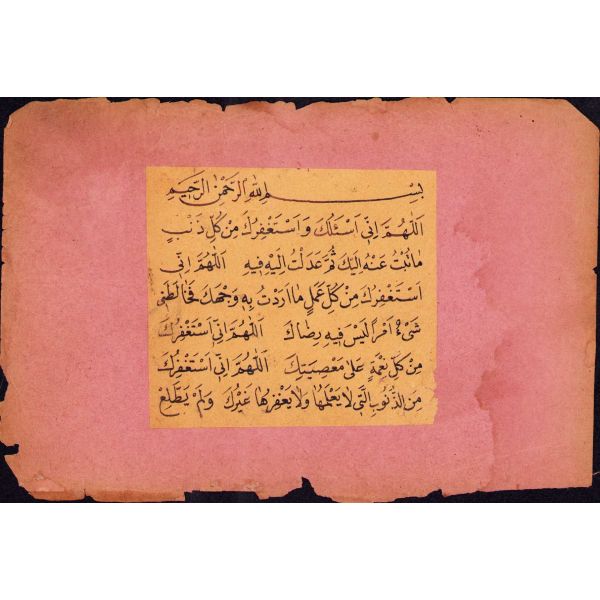 بِسْمِ اللهِ الرَّحْمٰنِ الرَّحِيمِ
اَللّٰهُمَّ اِنِّى اَسْئَلُكَ وَاَسْتَغْفِرُكَ مِنْ كُلِّ ذَنْبٍ
مَاتُبْتُ عَنْهُ اِلَيْكَ ثُمَّ عَدَلْتُ اِلَيْهِ فِيهِ اَللّٰهُمَّ اِنِّى
اَسْتَغْفِرُكَ مِنْ كُلِّ عَمَلٍ مَا اَرَدْتُ بِهِ وَجْهَكَ فَخَالَطَنِى
شَىْءٌ اَمْرًا لَيْسَ فِيهِ رِضَاكَ اَللّٰهُمَّ اِنِّى اَسْتَغْفِرُكَ
مِنْ كُلِّ نِعْمَةٍ عَلٰى مَعْصِيَتِكَ اَللّٰهُمَّ اِنِّى اَسْتَغْفِرُكَ
مِنَ الذُّنُوبِ الَّتِى لَا يَعْلَمُهَا وَلَا يَغْفِرُهَا غَيْرُكَ وَلَمْ يَطَّلِعْ